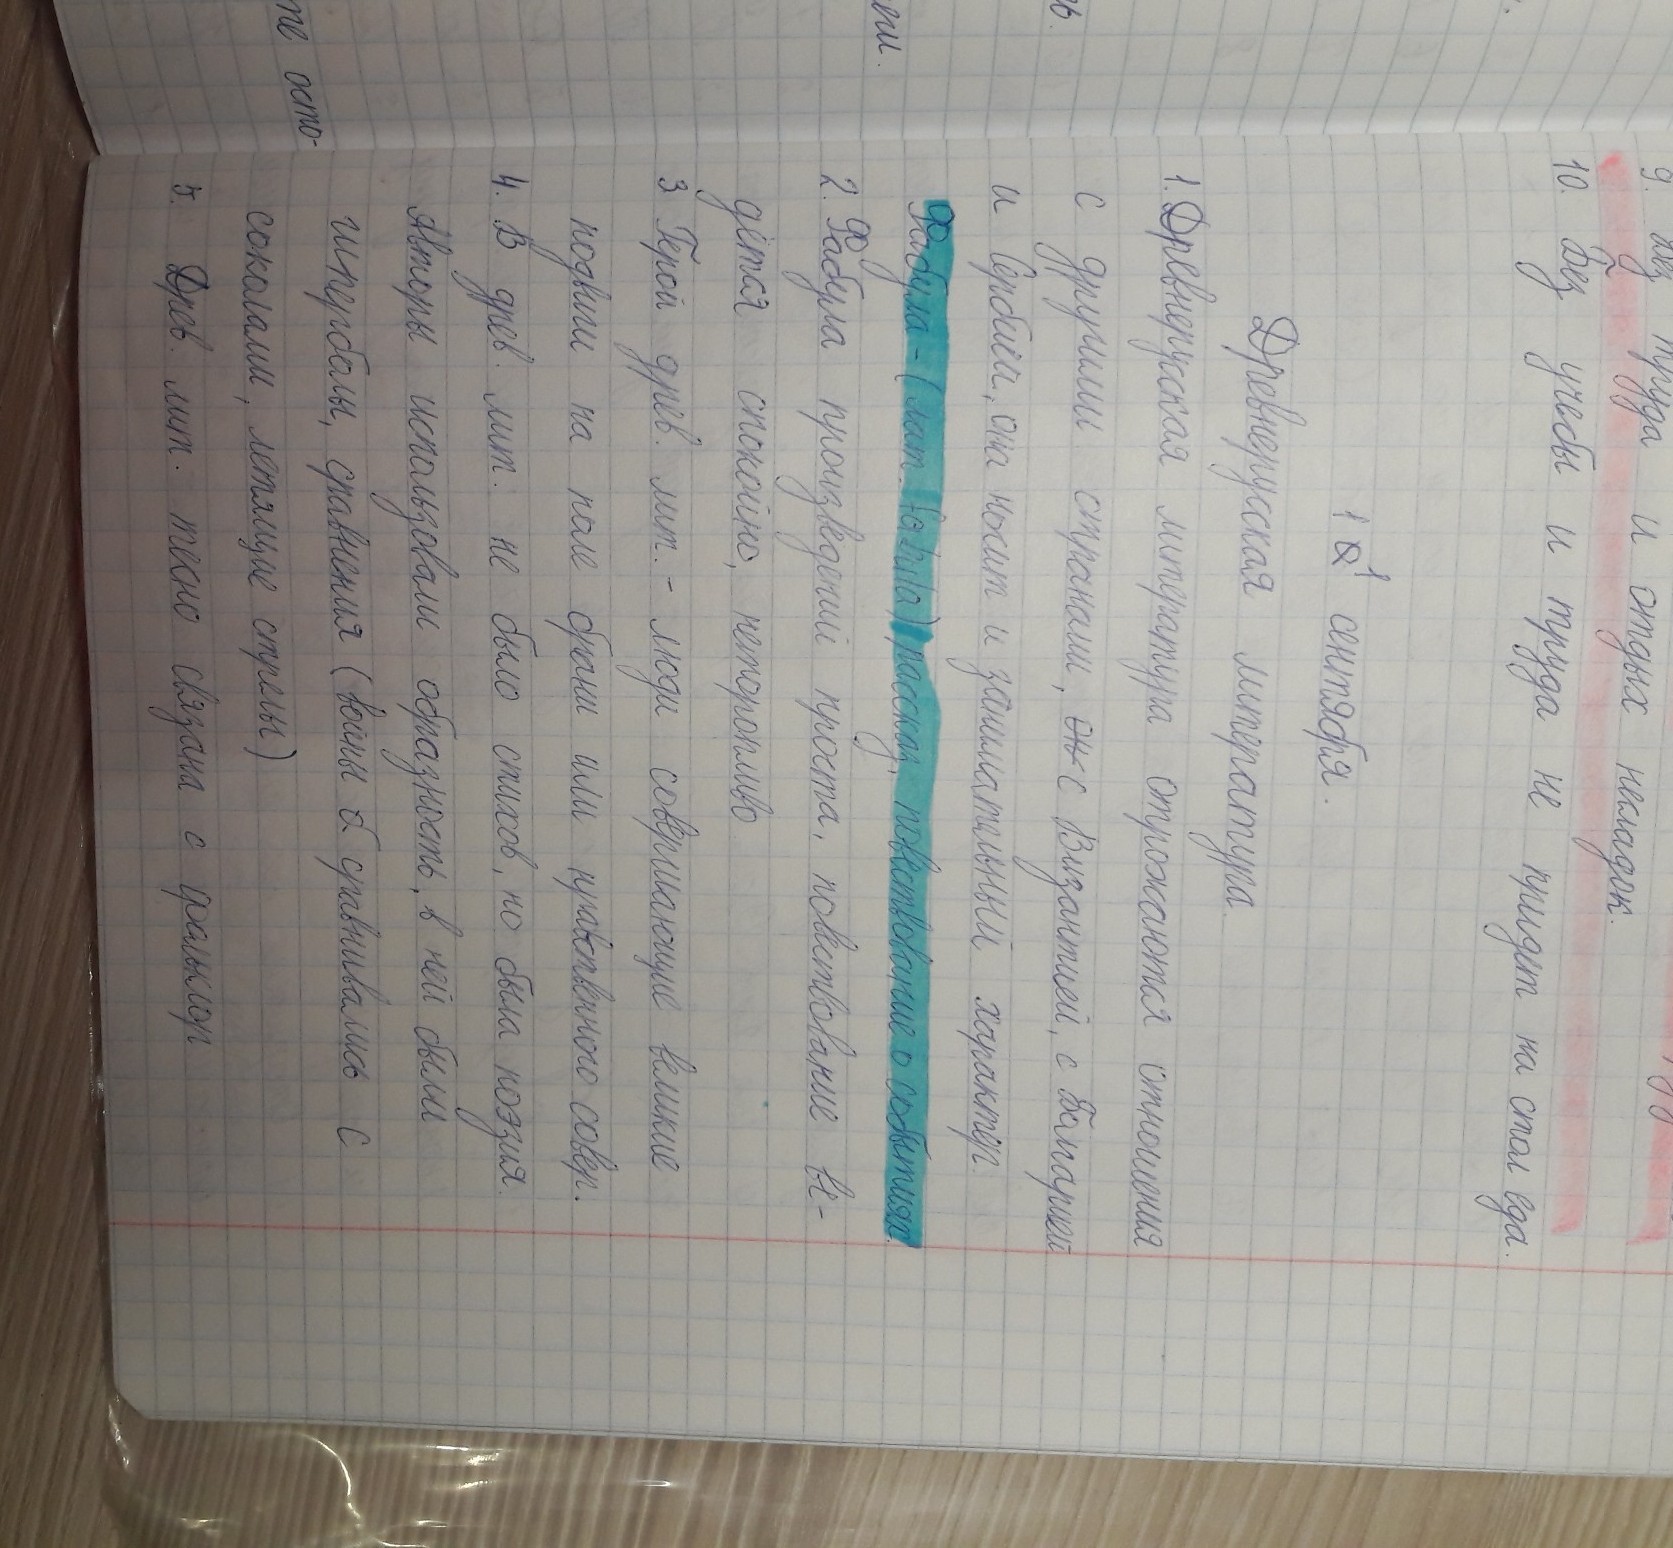 9. без труда и отдых несладок.
10. без учебы и труда не придёт на стол еда.
11 сентября.
Древнерусская литература
1. Древнерусская литература отрожаются отношения
с другими странами, с Византией, с Болгарией
и Сербией, она носит и занимательный характер.
Фабула - (лат. fabula) рассказ, повествование о событиях.
2. Фабула произведений проста, повествование ве-
дётся спокойно, неторопливо.
3 Герой древ. лит. - люди совершающие великие
подвиги на поле брани или нравственного совер.
4. В древ. лит. не было стихов, но была поэзия.
Авторы использовали образность, в ней были
гиперболы, сравнения (войны сравнивались с
соколами, летящие стрелы)
5. Древ. лит. тесно связана с фольклор
те осто-